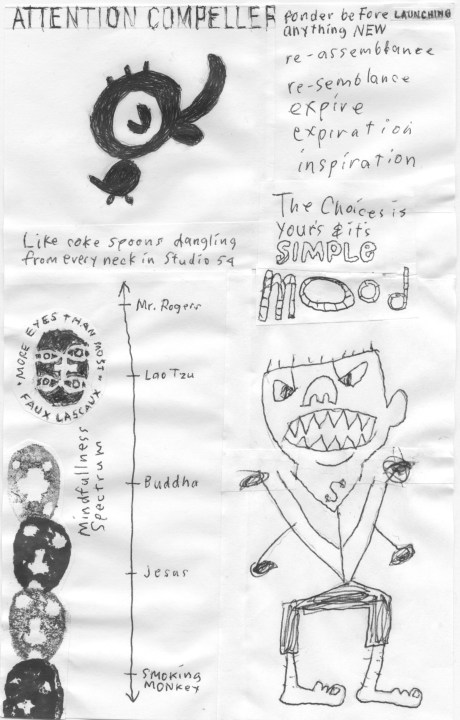 ATTENTION COMPELLER
ponder before LAUNCHING
anything NEW
re-assemblance
re-semblance
expire
expiration
inspiration
The Choices is
yours & it's
SIMPLE
mood
Like coke spoons dangling
from every neck in Studio 54
MORE EYES THAN MOST
FAUX LASCAUX
Mindfullness
Spectrum
Mr. Rogers
Lao Tzu
Buddha
jesus
SMOKING
MONKEY